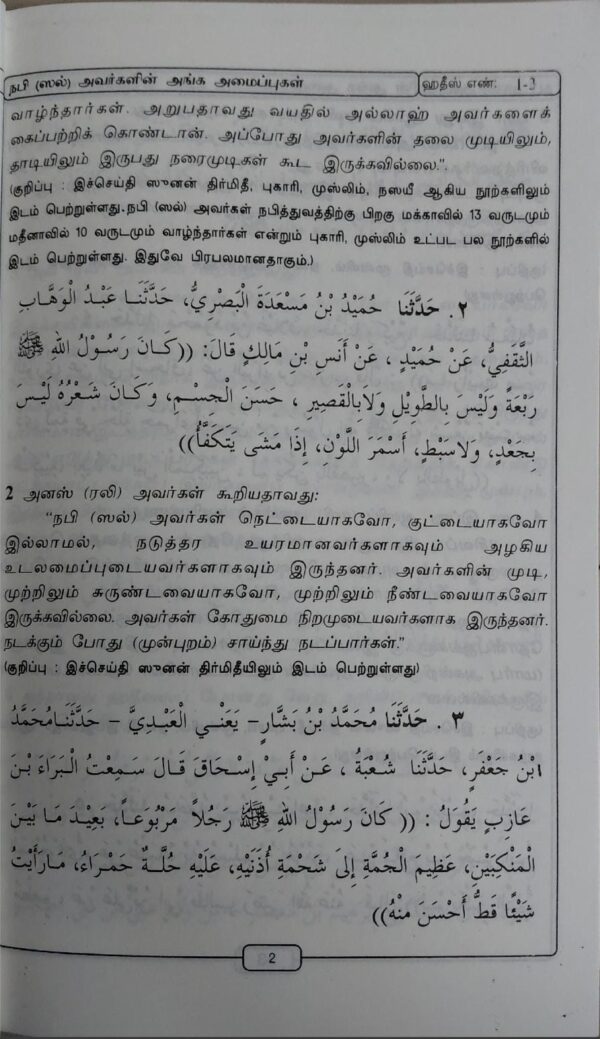 நபி (ஸல்) அவர்களின் அங்க அமைப்புகள் ஹதீஸ் எண்: 1-3
வாழ்ந்தார்கள். அறுபதாவது வயதில் அல்லாஹ் அவர்களைக்
கைப்பற்றிக் கொண்டான். அப்போது அவர்களின் தலை முடியிலும்,
தாடியிலும் இருபது நரைமுடிகள் கூட இருக்கவில்லை.”.
(குறிப்பு : இச்செய்தி ஸுனன் திர்மிதீ, புகாரி, முஸ்லிம், நஸயீ ஆகிய நூற்களிலும்
இடம் பெற்றுள்ளது.நபி (ஸல்) அவர்கள் நபித்துவத்திற்கு பிறகு மக்காவில் 13 வருடமும்
மதீனாவில் 10 வருடமும் வாழ்ந்தார்கள் என்றும் புகாரி, முஸ்லிம் உட்பட பல நூற்களில்
இடம் பெற்றுள்ளது. இதுவே பிரபலமானதாகும்.)
٢. حَدَّثَنَا حُمَيْدُ بْنُ مَسْعَدَةَ الْبَصْرِيُّ، حَدَّثَنَا عَبْدُ الْوَهَّابِ
الثَّقَفِيُّ، عَنْ حُمَيْدٍ ، عَنْ أَنَسِ بْنِ مَالِكٍ قَالَ: ((كَانَ رَسُوْلُ اللهِ ﷺ
رَبْعَةً وَلَيْسَ بِالطَّوِيْلِ وَلاَبِالْقَصِيرِ ، حَسَنَ الْجِسْمِ، وَكَانَ شَعْرُهُ لَيْسَ
بِجَعْدٍ، وَلاَسَبْطٍ، أَسْمَرَ اللَّوْنِ، إِذَا مَشَى يَتَكَفَّأُ))
2 அனஸ் (ரலி) அவர்கள் கூறியதாவது:
“நபி (ஸல்) அவர்கள் நெட்டையாகவோ, குட்டையாகவோ
இல்லாமல், நடுத்தர உயரமானவர்களாகவும் அழகிய
உடலமைப்புடையவர்களாகவும் இருந்தனர். அவர்களின் முடி,
முற்றிலும் சுருண்டவையாகவோ, முற்றிலும் நீண்டவையாகவோ
இருக்கவில்லை. அவர்கள் கோதுமை நிறமுடையவர்களாக இருந்தனர்.
நடக்கும் போது (முன்புறம்) சாய்ந்து நடப்பார்கள்.”
(குறிப்பு : இச்செய்தி ஸுனன் திர்மிதீயிலும் இடம் பெற்றுள்ளது)
٣ . حَدَّثَنَا مُحَمَّدُ بْنُ بَشَّارٍ- يَعْنِي الْعَبْدِيَّ – حَدَّثَنَامُحَمَّدُ
ابْنُ جَعْفَرٍ، حَدَّثَنَا شُعْبَةُ ، عَنْ أَبِي إِسْحَاقَ قَالَ سَمِعْتُ الْبَرَاءَ بْنَ
عَازِبٍ يَقُوْلُ : (( كَانَ رَسُوْلُ اللهِ ﷺ رَجُلاً مَرْبُوعَاً، بَعِيْدَ مَا بَيْنَ
الْمَنْكِبَيْنِ، عَظِيمَ الْجُمَّةِ إِلَى شَحْمَةِ أُذُنَيْهِ، عَلَيْهِ حُلَّةٌ حَمْرَاءُ، مَارَأَيْتُ
شَيْئًا قَطُّ أَحْسَنَ مِنْهُ))
2